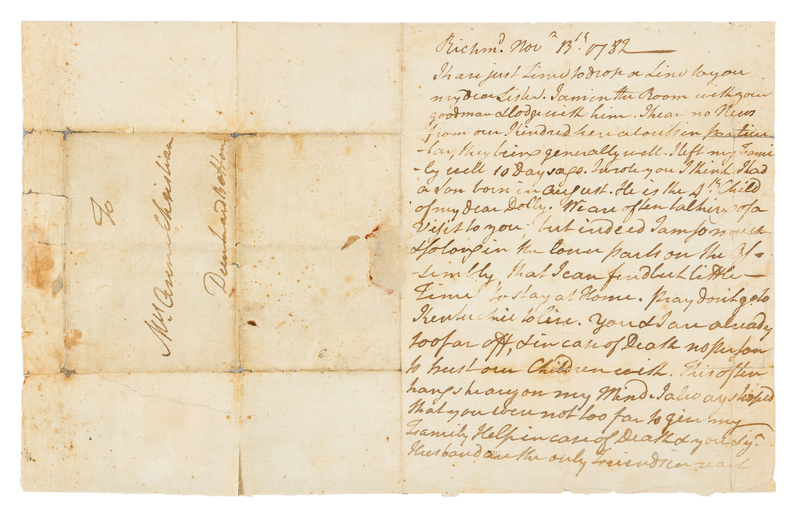 To
Mrs. Anne Christian
Richmd. Novr. 13th 1782
I have just time to drop a Line to you
my dear Sister. I am in the Room with your
goodman & lodge with him. I hear no News
from our Kindred hereabouts in particu-
-lar, they being generally well. I left my Fami-
ly well 10 days ago. I wrote you I think I had
a Son born in August. He is the 4th Child
of my dear Dolly. We are often talking of a
Visit to you but indeed I am so much
& so long in the lower parts on the As-
-sembly, that I can find but little
Time to stay at Home. Pray don't go to
Kentuckie to live. You & I are already
too far off, & in case of Death no person
to trust our Children with. This often
hangs heavy on my Mind. I always hoped
that you were not too far to give my
Family Help in case of Death & you & yr.
Husband are the only Friends in